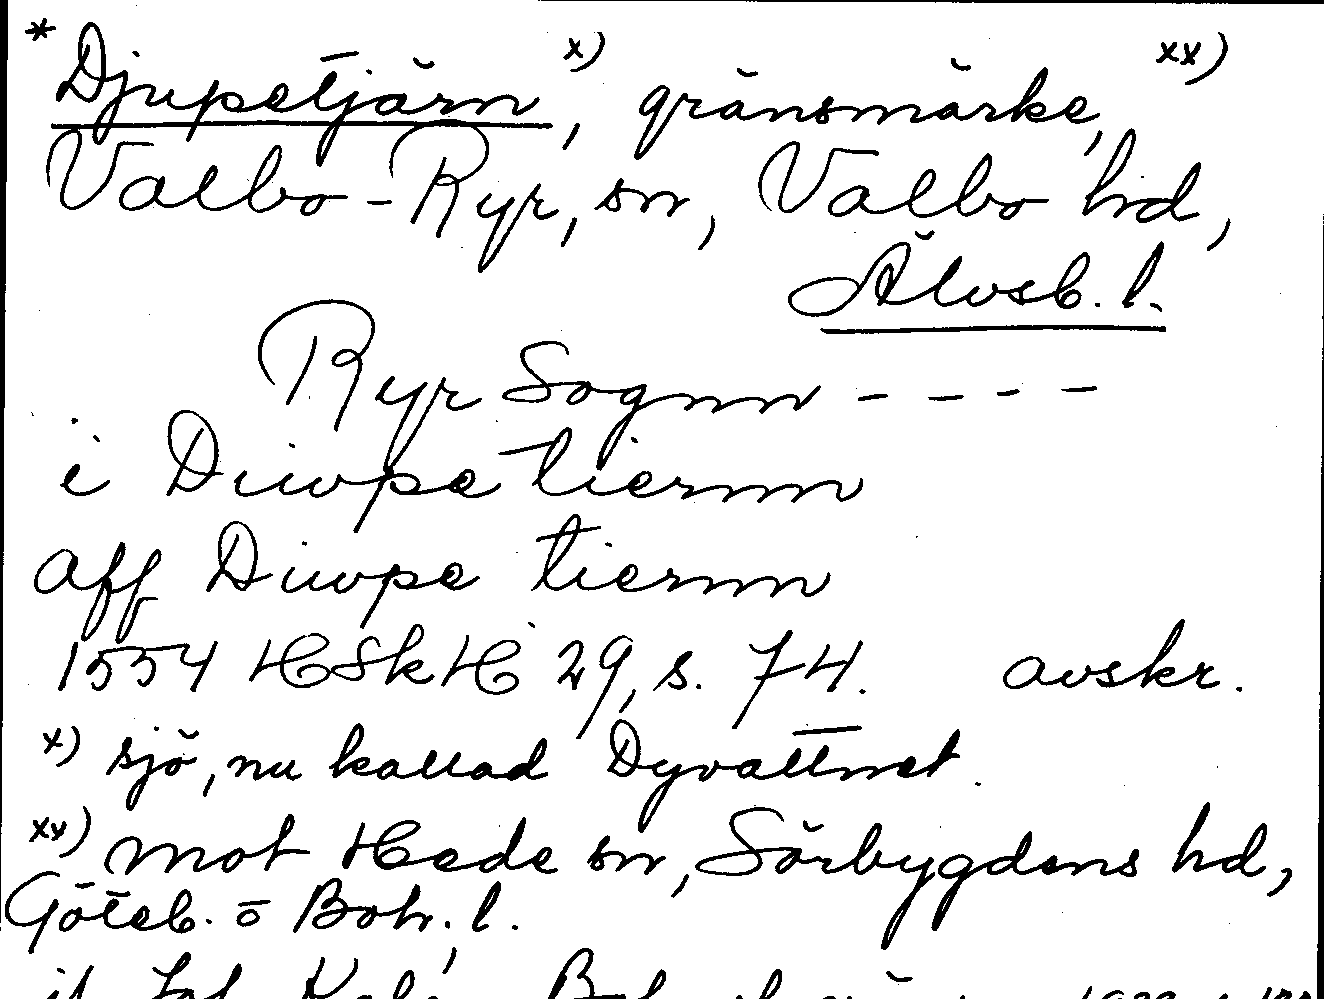 * Djupetjärn x), gränsmärke, xx)
Valbo-Ryr, sn, Valbo hd,
Älvsb. l.
Ryr Sognn - - - -
i Diwpe tiernn
aff Diwpe tiernn
1554 HSkH 29, s. 74. avskr.
x) sjö, nu kallad Dyvattnet.
xx) mot Hede sn, Sörbygdens hd,
Göteb. o Boh. l.